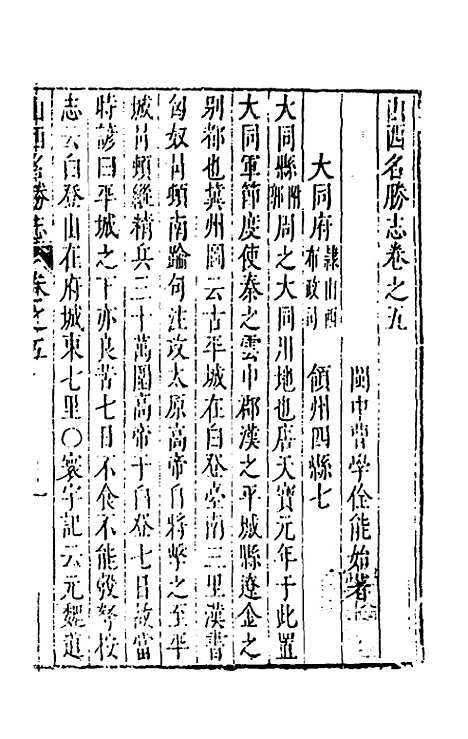 山西名勝志卷之五
閩中曹學佺能始著
大同府隸山西布政司 領州四縣七
大同縣附郭周之大同川地也唐天寶元年于此置
大同軍節度使秦之雲中郡漢之平城縣遼金之
別都也冀州圖云古平城在白登臺南三里漢書
匈奴冒頓南踰句注攻太原高帝自將擊之至平
城冒頓縱精兵三十萬圍高帝于白登七日故當
時諺曰平城之下亦良苦七日不食不能彀弩按
志云白登山在府城東七里〇寰宇記云元魏道
山西名勝志 卷之五